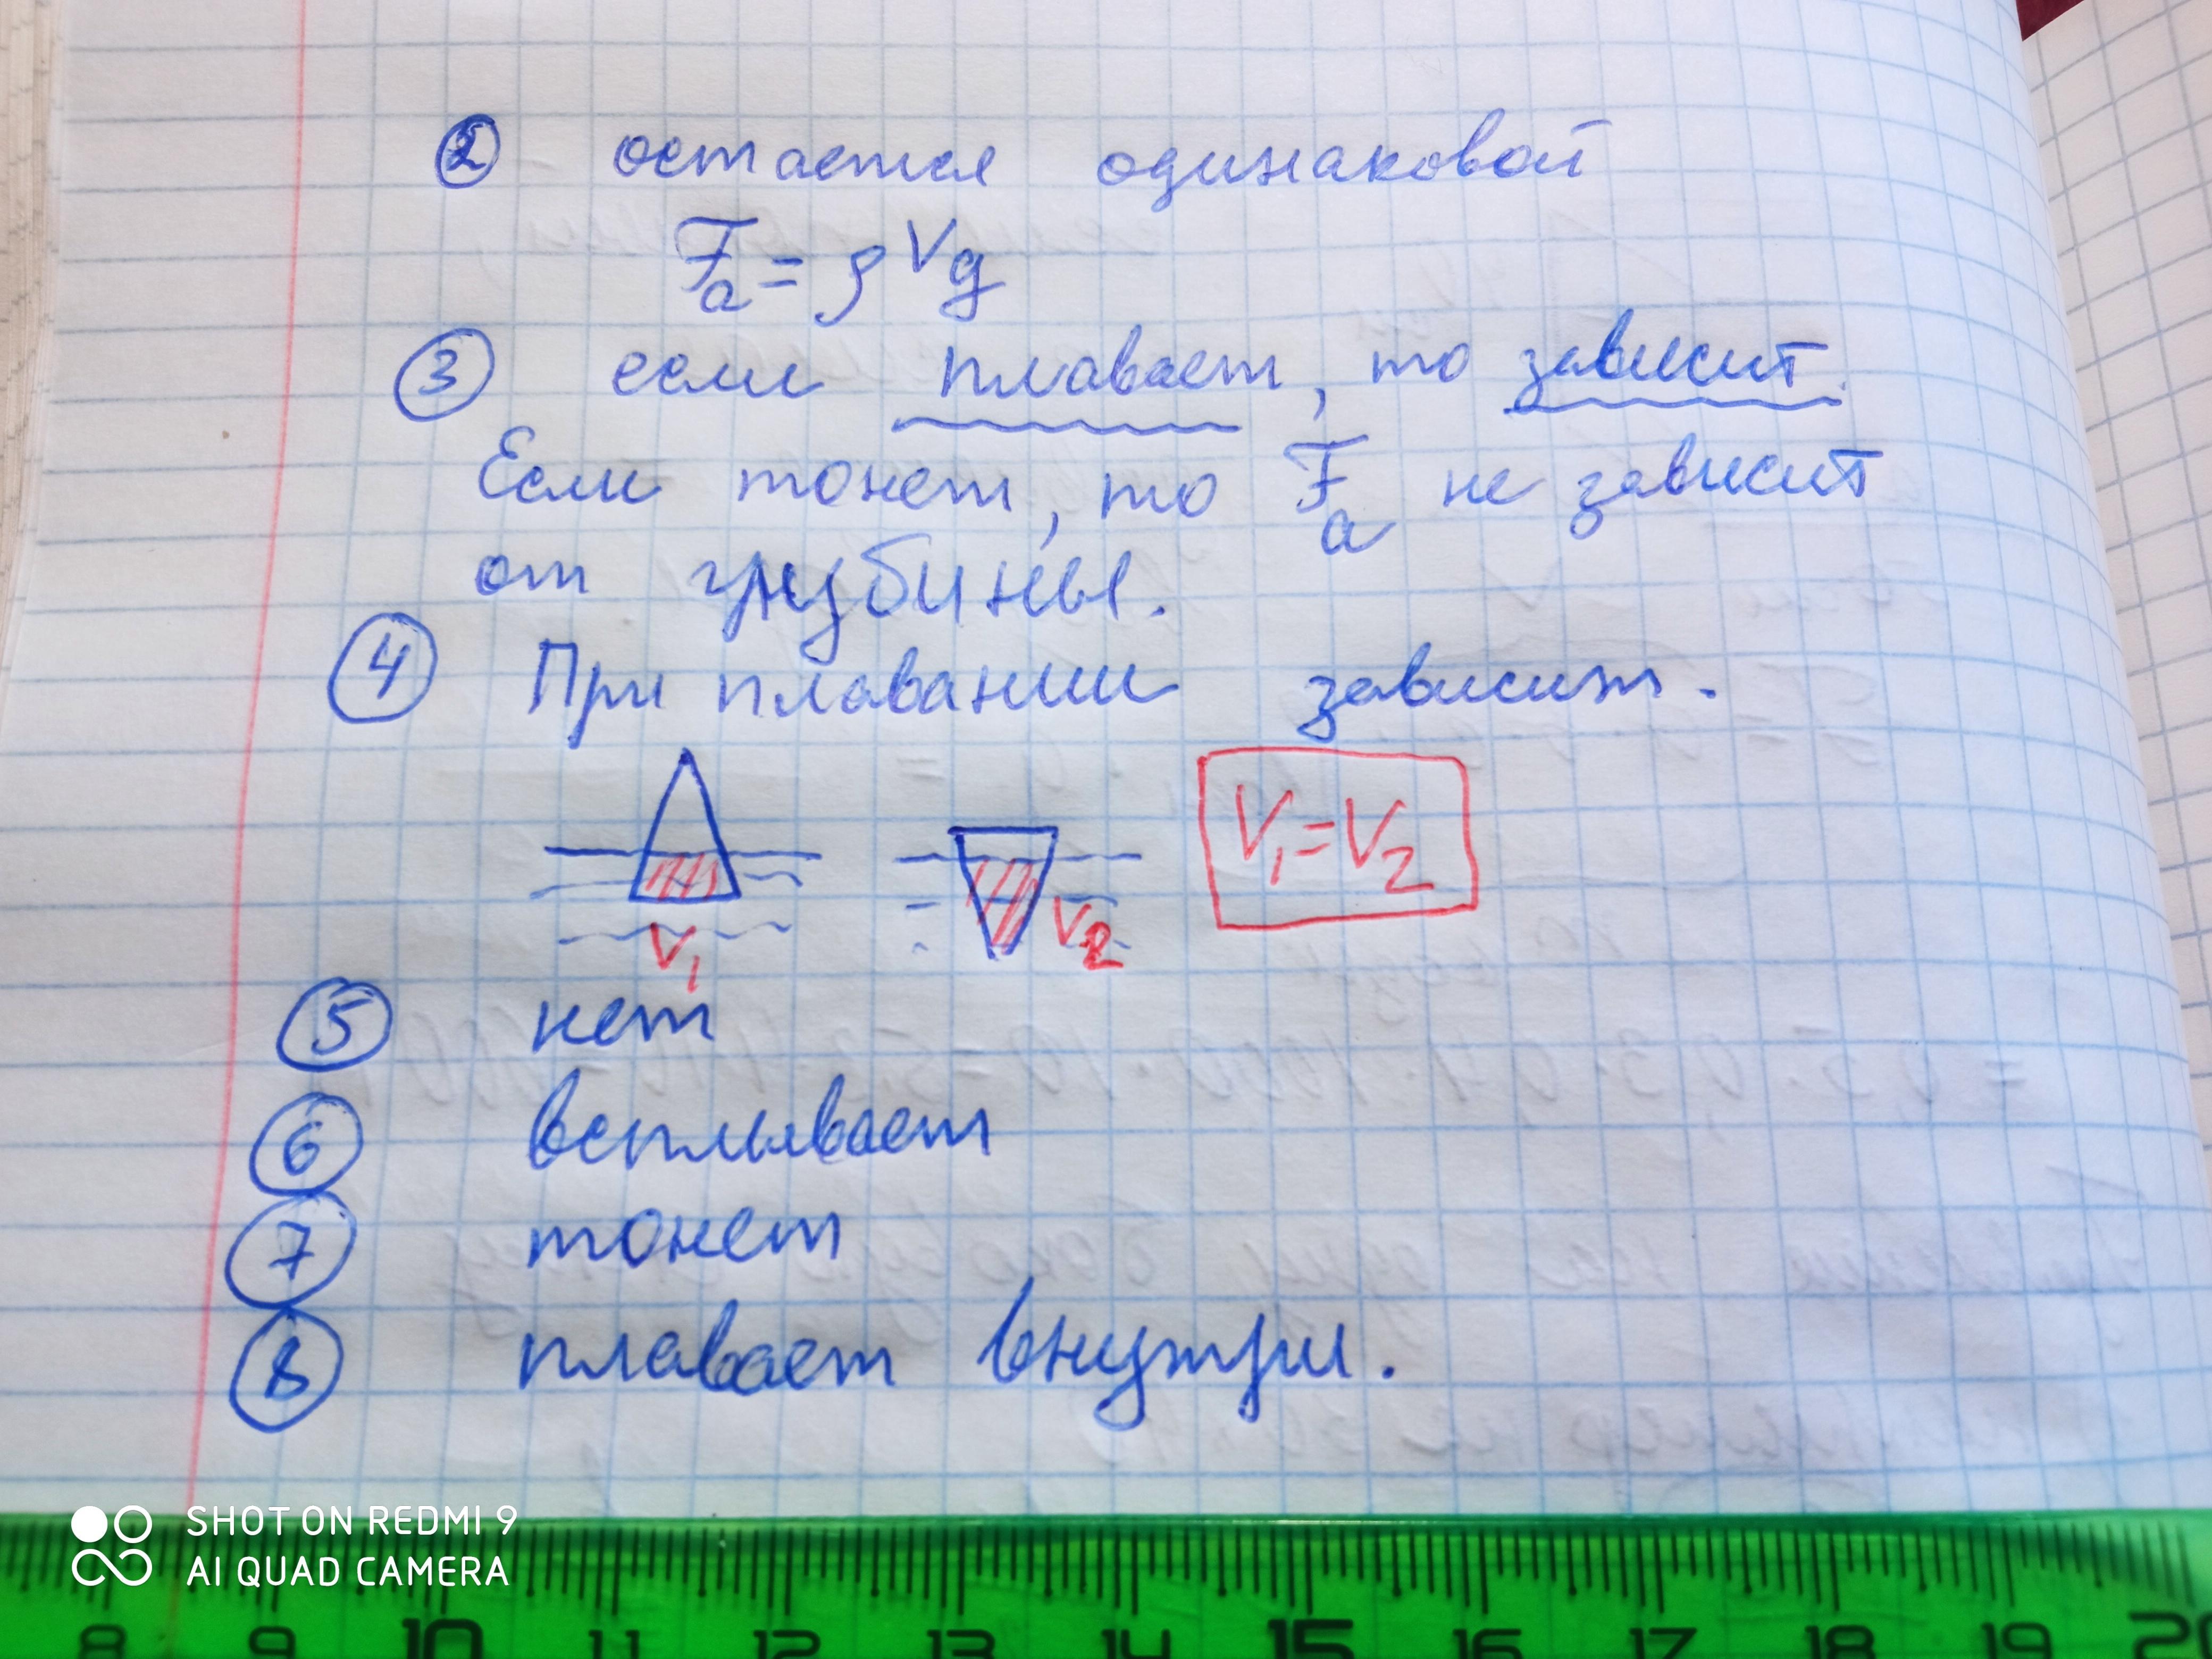 ② остается одинаковой
Fa = ρVg
③ если плавает, то зависит.
Если тонет, то Fa не зависит
от глубины.
④ При плавании зависит.
V₁
V₂
V₁=V₂
⑤ нет
⑥ всплывает
⑦ тонет
⑧ плавает внутри.
SHOT ON REDMI 9
AI QUAD CAMERA
8 9 10 11 12 13 14 15 16 17 18 19 20